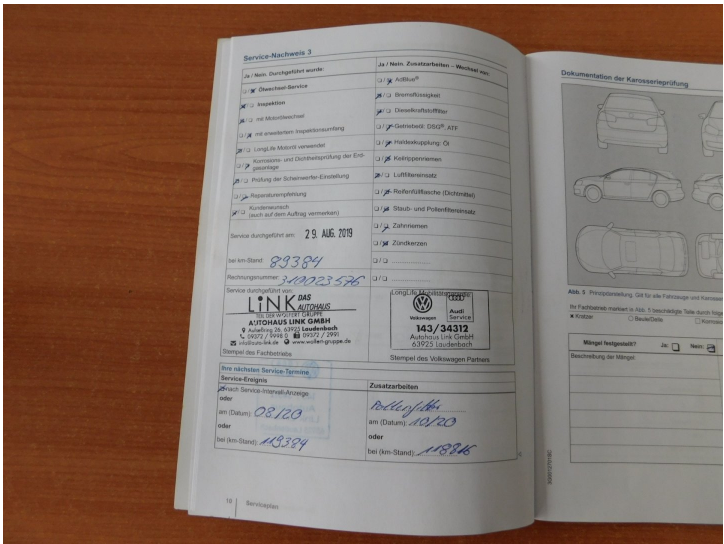 Service-Nachweis 3
Ja / Nein. Durchgeführt wurde:
Ölwechsel-Service
Inspektion
mit Motorölwechsel
mit erweitertem Inspektionsumfang
LongLife Motoröl verwendet
Korrosions- und Dichtheitsprüfung der Erdgasanlage
Prüfung der Scheinwerfer-Einstellung
Reparaturempfehlung
Kundenwunsch
(auch auf dem Auftrag vermerken)
Service durchgeführt am: 29. AUG. 2019
bei km-Stand: 89384
Rechnungsnummer: 310023576
Service durchgeführt von:
LiNK DAS AUTOHAUS
TEIL DER WOLFERT GRUPPE
AUTOHAUS LINK GMBH
63925 Laudenbach
09372 / 9998 0 09372 / 2991
info@auto-link.de
Stempel des Fachbetriebs
Ja / Nein. Zusatzarbeiten – Wechsel von:
AdBlue®
Bremsflüssigkeit
Dieselkraftstofffilter
Getriebeöl: DSG®, ATF
Haldexkupplung: Öl
Keilrippenriemen
Luftfiltereinsatz
Reifenfüllflasche (Dichtmittel)
Staub- und Pollenfiltereinsatz
Zahnriemen
Zündkerzen
LongLife Mobilitätsgarantie
Volkswagen
Audi Service
143/34312
Autohaus Link GmbH
63925 Laudenbach
Stempel des Volkswagen Partners
Ihre nächsten Service-Termine
Service-Ereignis
nach Service-Intervall-Anzeige
oder
am (Datum): 08/20
oder
bei (km-Stand): 119384
Zusatzarbeiten
Pollenfilter
am (Datum): 10/20
oder
bei (km-Stand): 118816
Serviceplan
Dokumentation der Karosserieprüfung
Abb. 5 Prinzipdarstellung. Gilt für alle Fahrzeuge und
Ihr Fachbetrieb markiert in Abb. 5 beschädigte Teile durch
Kratzer
Beule/Delle
Mängel festgestellt? Ja: Nein:
Beschreibung der Mängel: